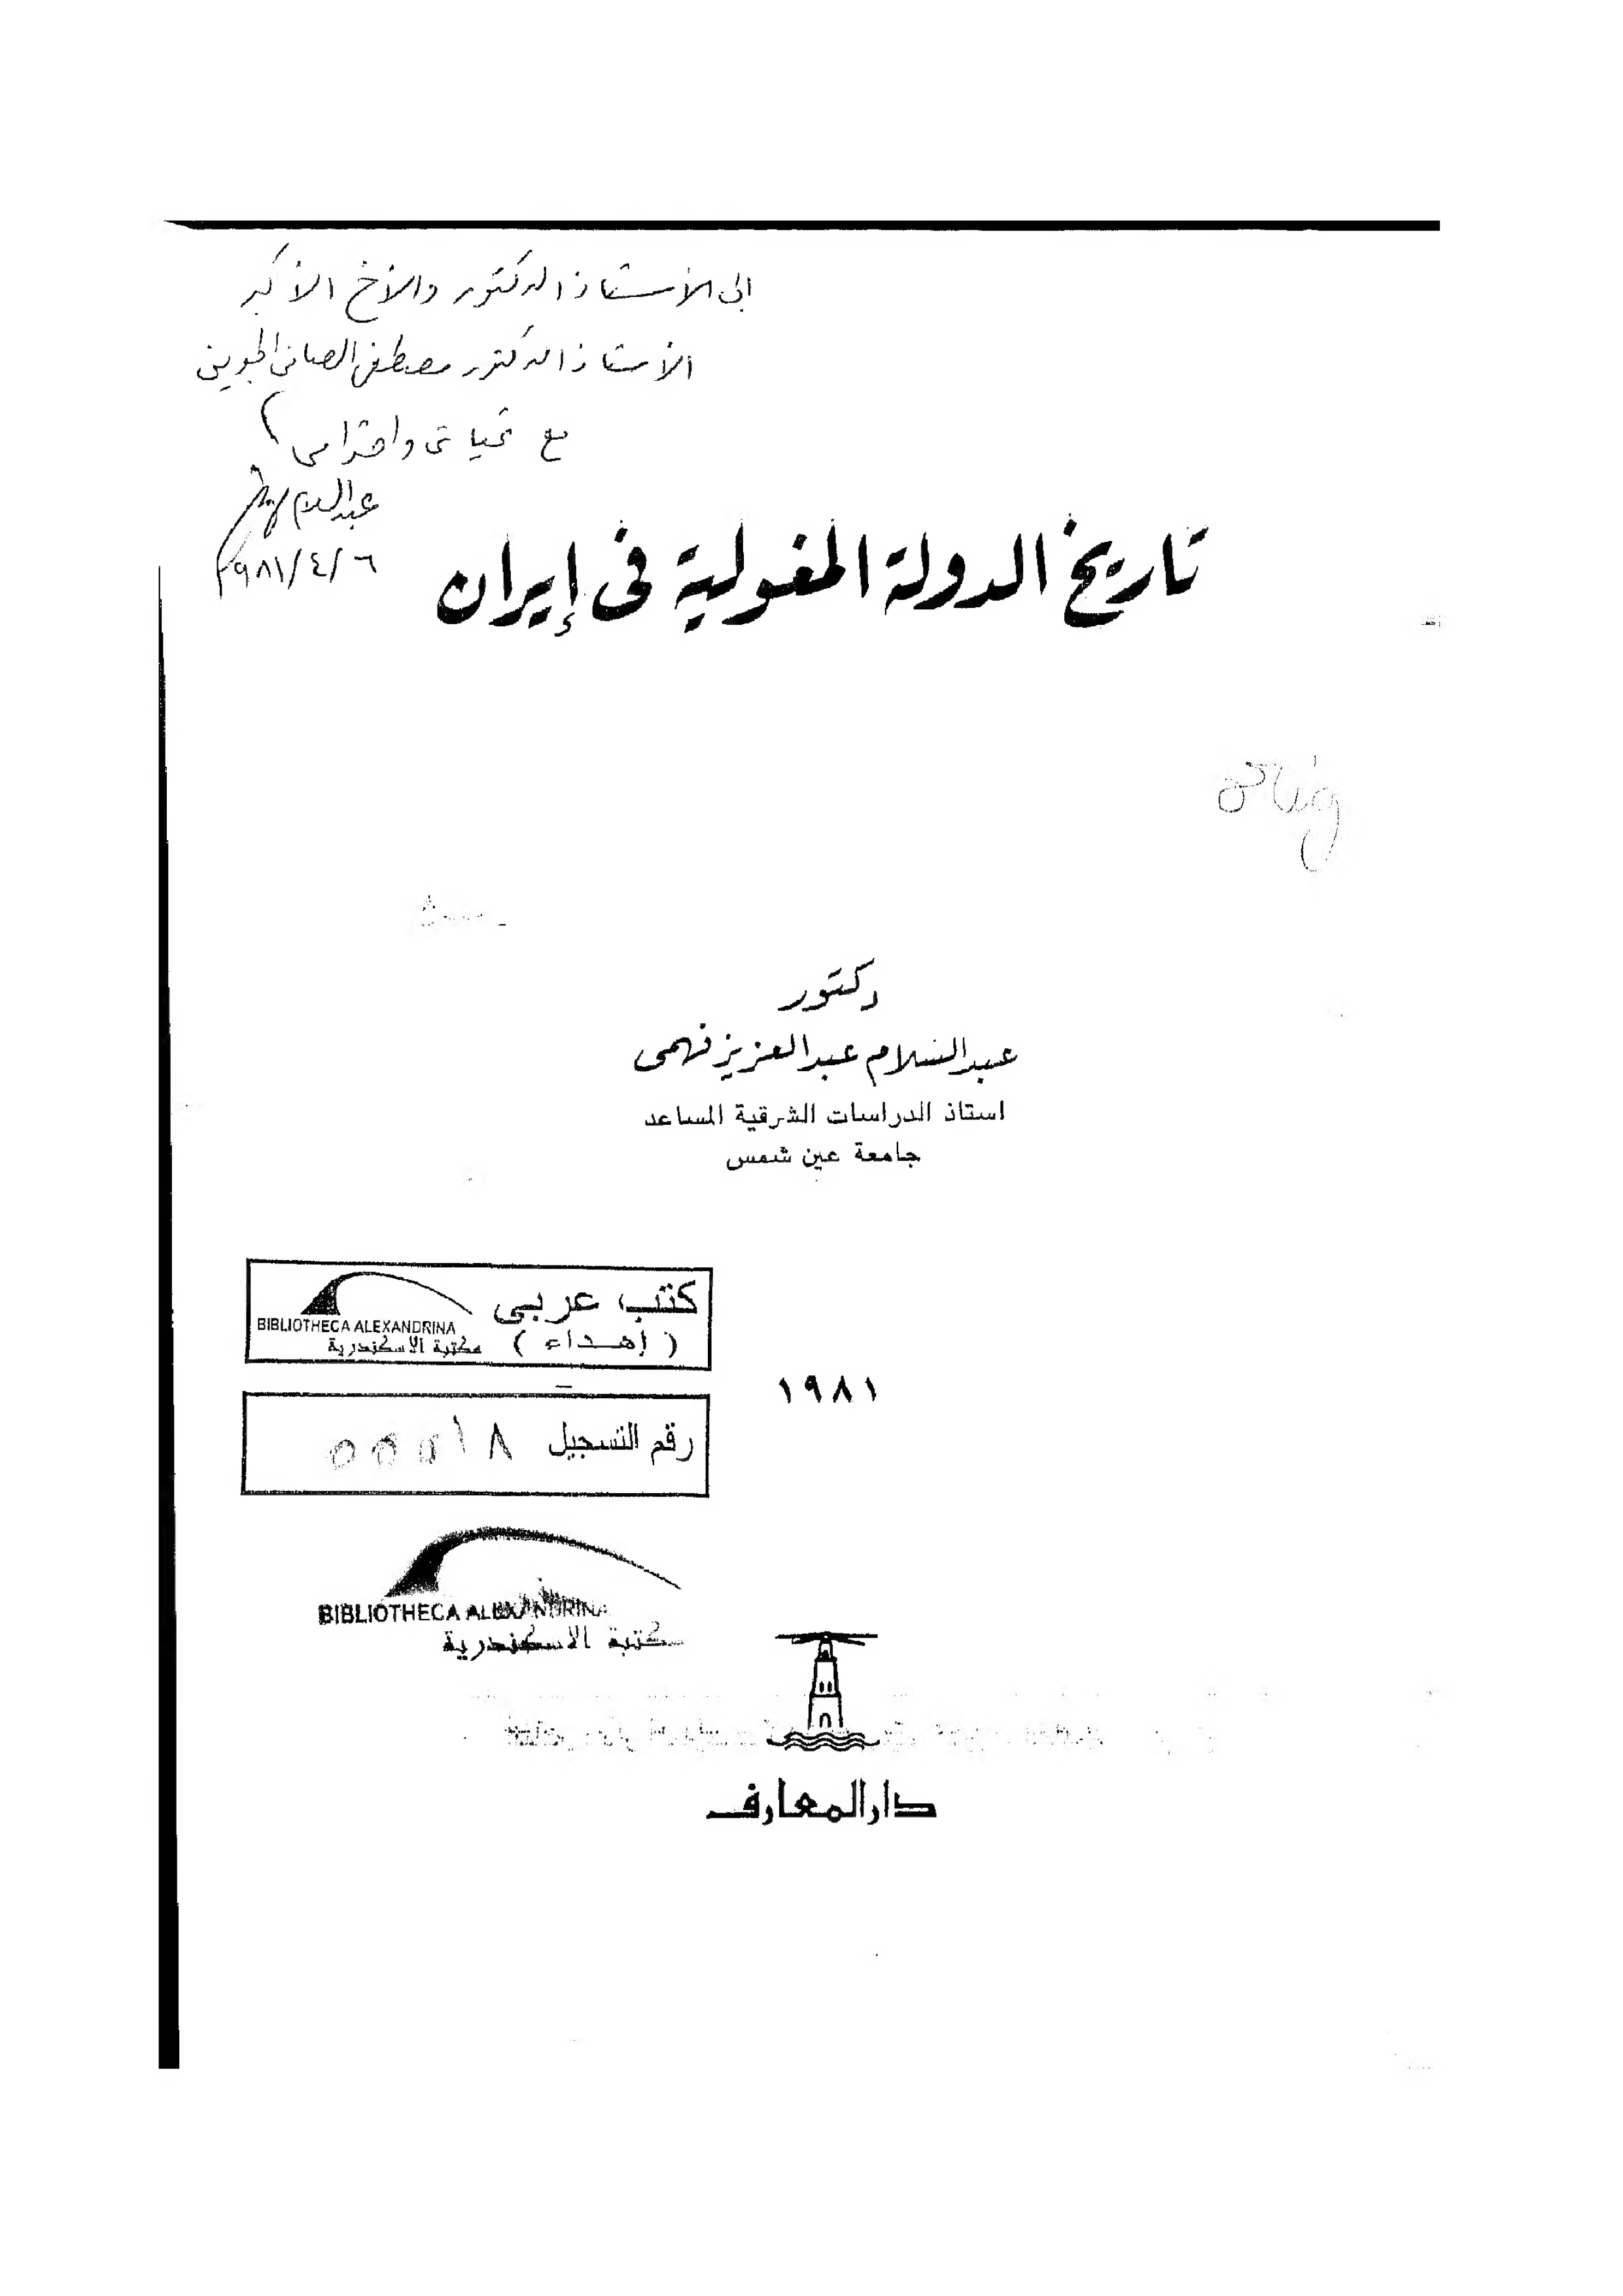 إلى الأستاذ الدكتور والأخ الأكبر
الأستاذ الدكتور مصطفى الصاوى الجوينى
مع تحياتى واحترامى
عبد السلام فهمى
١٩٨١/٤/٦
تاريخ الدولة المغولية فى إيران
دكتور
عبد السلام عبد العزيز فهمى
استاذ الدراسات الشرقية المساعد
جامعة عين شمس
كتب عربى
( إهداء )
BIBLIOTHECA ALEXANDRINA
مكتبة الاسكندرية
١٩٨١
رقم التسجيل
BIBLIOTHECA ALEXANDRINA
مكتبة الاسكندرية
دارالمعارف